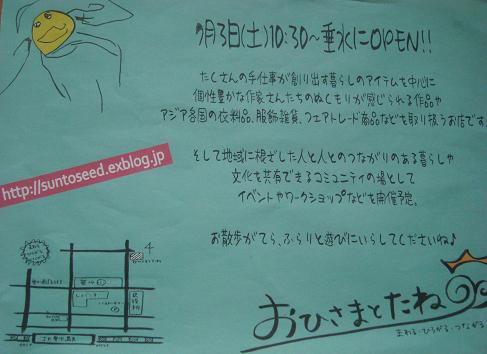 7月3日(土)10:30～垂水にOPEN!!
たくさんの手仕事が創り出す暮らしのアイテムを中心に
個性豊かな作家さんたちのぬくもりが感じられる作品や
アジア各国の衣料品、服飾雑貨、フェアトレード商品などを取り扱うお店です。
そして地域に根ざした人と人とのつながりのある暮らしや
文化を共有できるコミュニティの場として
イベントやワークショップなどを開催予定。
お散歩がてら、ふらりと遊びにいらしてくださいね♪
http://suntoseed.exblog.jp
おひさまとたね
まわる・ひろがる・つながる